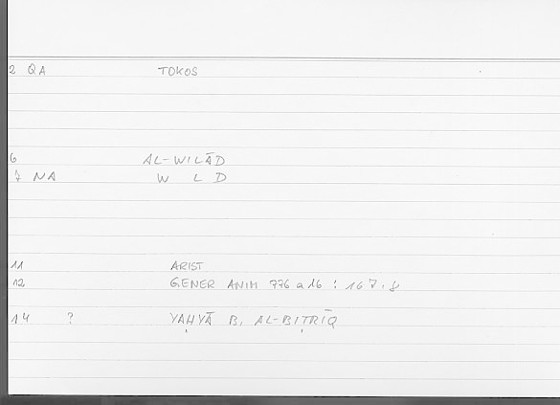 2 QA TOKOS
6 AL-WILĀD
7 NA W L D
11 ARIST
12 GENER ANIM 776 a 16 : 167.8
14 ? YAḤYĀ B. AL-BIṬRĪQ